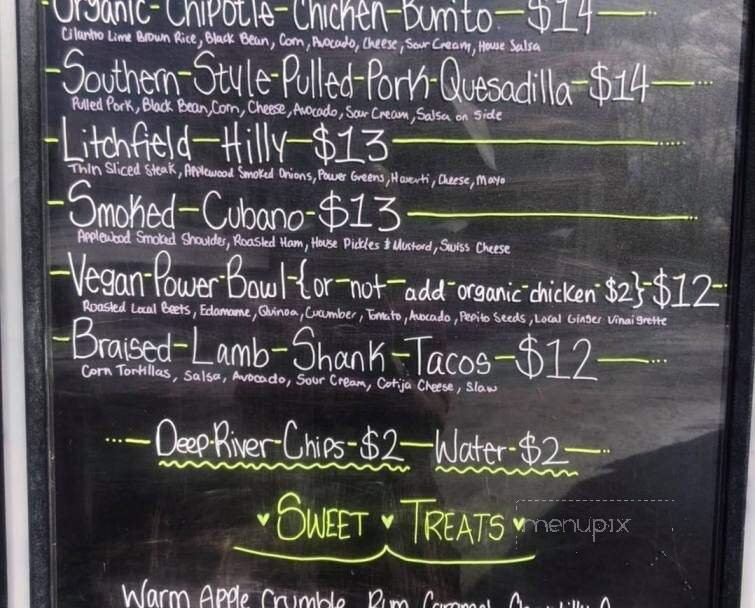 Organic-Chipotle-Chicken-Burrito-$14
Cilantro Lime Brown Rice, Black Bean, Corn, Avocado, Cheese, Sour Cream, House Salsa
Southern-Style-Pulled-Pork-Quesadilla-$14
Pulled Pork, Black Bean, Corn, Cheese, Avocado, Sour Cream, Salsa on Side
Litchfield-Hilly-$13
Thin Sliced Steak, Applewood Smoked Onions, Power Greens, Havarti, Cheese, Mayo
Smoked-Cubano-$13
Applewood Smoked Shoulder, Roasted Ham, House Pickles & Mustard, Swiss Cheese
Vegan-Power-Bowl-{or-not-add-organic-chicken $2}-$12
Roasted Local Beets, Edamame, Quinoa, Cucumber, Tomato, Avocado, Pepito Seeds, Local Ginger Vinaigrette
Braised-Lamb-Shank-Tacos-$12
Corn Tortillas, Salsa, Avocado, Sour Cream, Cotija Cheese, Slaw
Deep-River-Chips-$2-Water-$2
SWEET TREATS
menupix
Warm Apple Crumble Rum Caramel